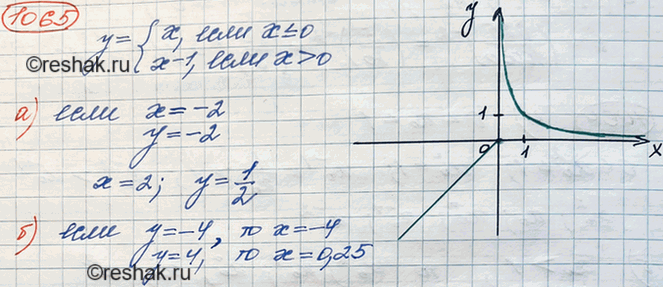 1065
y = { x, если x ≤ 0
x-1, если x > 0
©reshak.ru
а) если x = -2
y = -2
x = 2; y = 1/2
б) если y = -4, то x = -4
y = 4, то x = 0,25
©reshak.ru
y
1
0 1 x